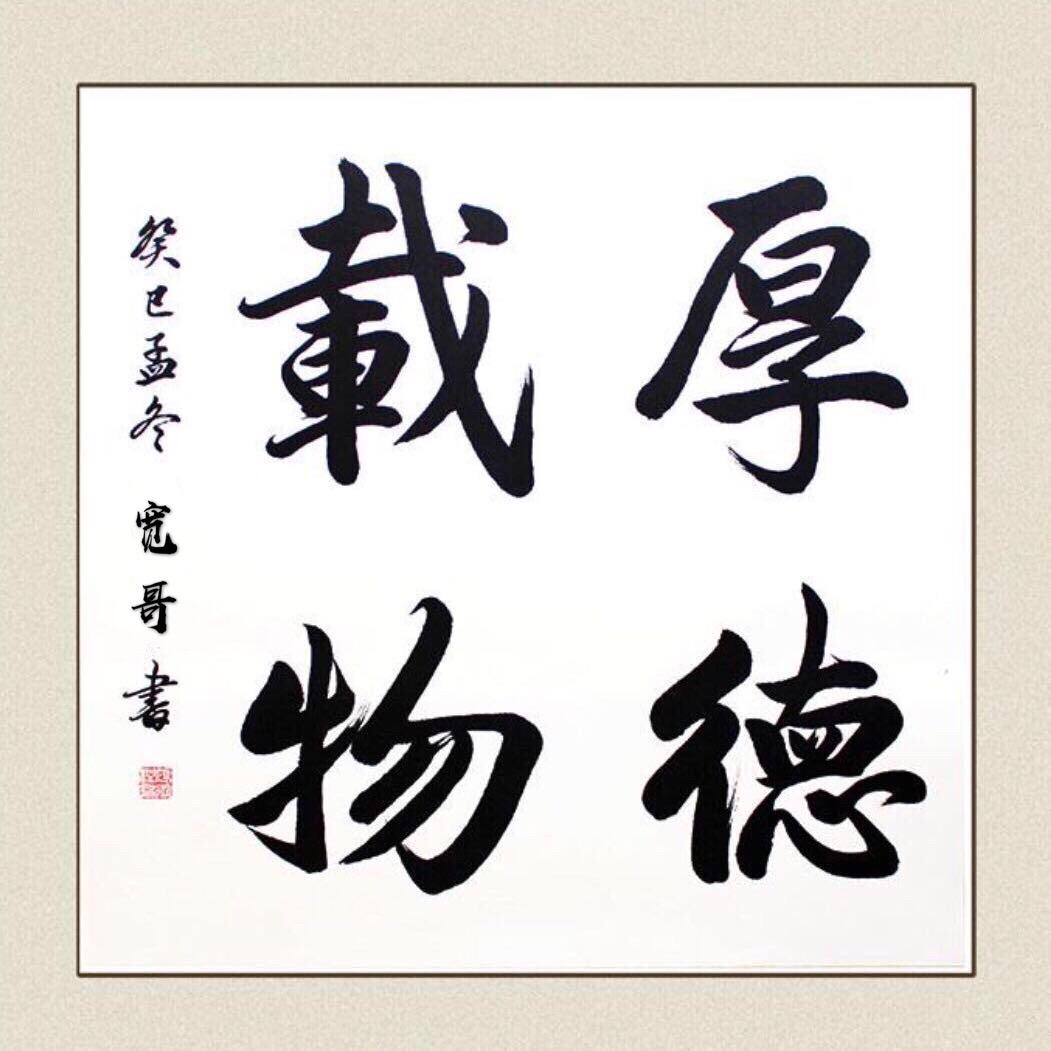 厚德
載物
癸巳孟冬 寬哥書